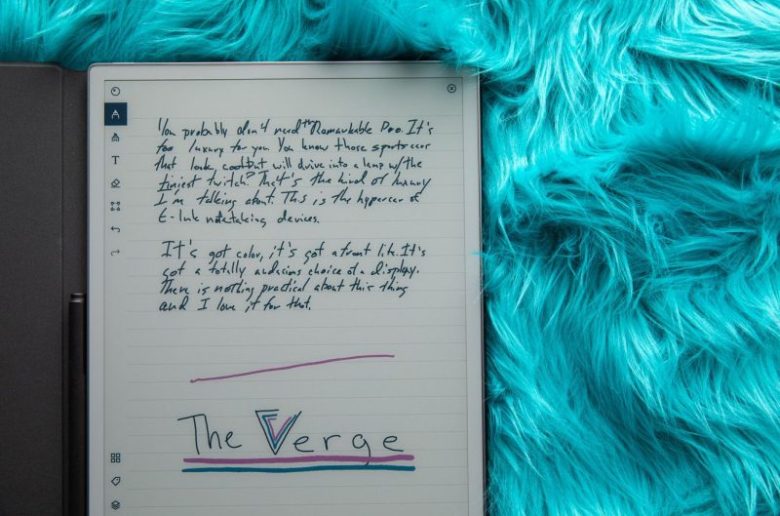 You probably don't need the Remarkable Pro. It's
too luxury for you. You know those sportscars
that look cool but will drive into a lamp w/the
tiniest twitch? That's the kind of luxury
I'm talking about. This is the hypercar of
E-Ink notetaking devices.
It's got color, it's got a front lite. It's
got a totally audacious choice of a display.
There is nothing practical about this thing
and I love it for that.
The Verge